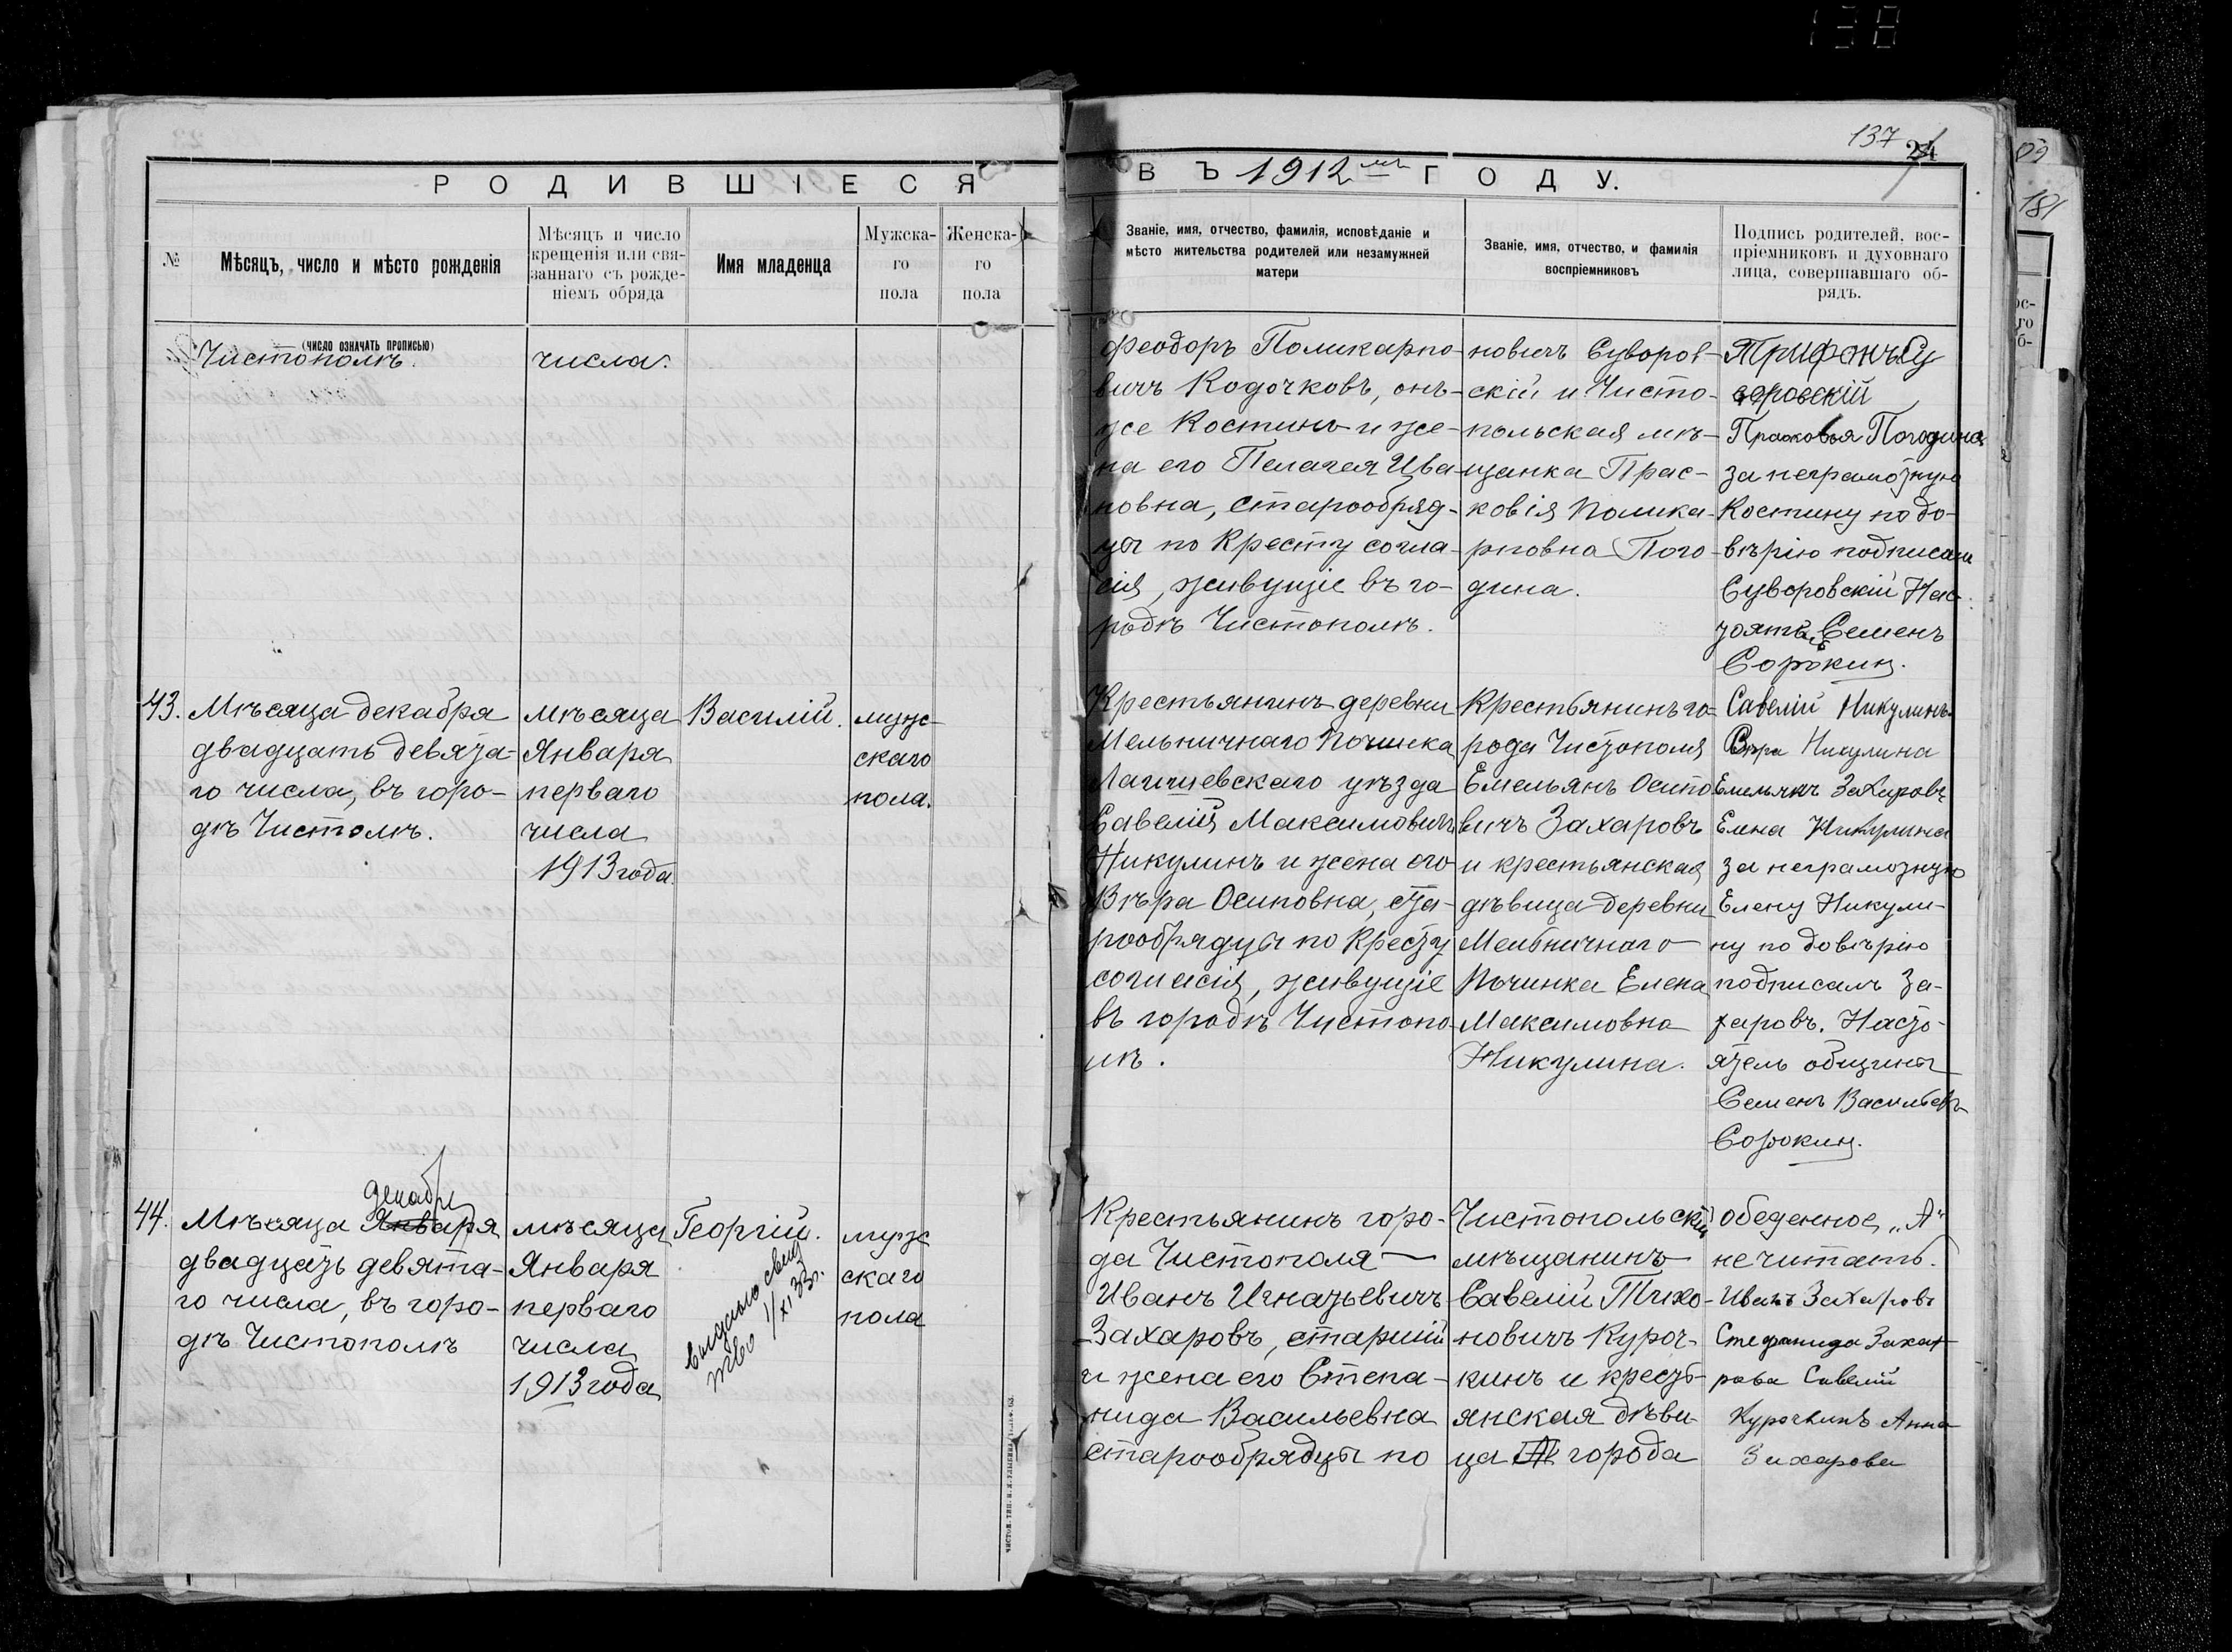 138
137
24
РОДИВШІЕСЯ
ВЪ 1912 мъ ГОДУ.
№
Мѣсяцъ, число и мѣсто рожденія
Мѣсяцъ и число
крещенія или свя-
заннаго съ рожде-
ніемъ обряда
Имя младенца
Мужска-
го
пола
Женска-
го
пола
Званіе, имя, отчество, фамилія, исповѣданіе и
мѣсто жительства родителей или незамужней
матери
Званіе, имя, отчество, и фамилія
воспріемниковъ
Подпись родителей, вос-
пріемниковъ и духовнаго
лица, совершавшаго об-
рядъ.
(число означать прописью)
Чистополѣ.
числа.
Феодоръ Поликарпо-
вичъ Кодочковъ, онъ-
же Костинъ и же-
на его Пелагея Ива-
новна, старообряд-
цы по Кресту согла-
сія, живущіе въ го-
родѣ Чистополѣ.
новичъ Суворов-
скій и Чисто-
польская мѣ-
щанка Прас-
ковія Полика-
рповна Пого-
дина.
Трифонъ Су
воровскій
Прасковья Погодина
за неграмотную
Костину по до-
вѣрію подписалъ
Суворовскій Нас-
тоятель Семенъ
Сорокин.
43.
Мѣсяца декабря
двадцать девята-
го числа, въ горо-
дѣ Чистолѣ.
мѣсяца
Января
перваго
числа
1913 года.
Василій.
муж-
скаго
пола.
Крестьянинъ деревни
Мельничнаго Починка
Лаишевскаго уѣзда
Савелій Максимовичъ
Никулинъ и жена его
Вѣра Осиповна, ста-
рообрядцы по Кресту
согласія, живущіе
въ городѣ Чистопо-
лѣ.
Крестьянинъ го-
рода Чистополя
Емельянъ Осипо-
вичъ Захаровъ
и крестьянская
дѣвица деревни
Мельничнаго
Починка Елена
Максимовна
Никулина.
Савелій Никулинъ
Вѣра Никулина
Емельянъ Захаровъ
Елена Никулина
за неграмотную
Елену Никули-
ну по довѣрію
подписалъ За-
харовъ. Насто-
ятель общины
Семенъ Васильевъ
Сорокин.
44.
декабря
Мѣсяца Января
двадцать девята-
го числа, въ горо-
дѣ Чистополѣ
мѣсяца
Января
перваго
числа
1913 года
Георгій.
выдано свид
тво 1/XI 33г.
муж
скаго
пола
Крестьянинъ горо-
да Чистополя
Иванъ Игнатьевичъ
Захаровъ, старшій
и жена его Степа-
нида Васильевна
старообрядцы по
Чистопольскій
мѣщанинъ
Савелій Тихо-
новичъ Куроч-
кинъ и кресть-
янская дѣви-
ца А города
обеденное „А"
не читать.
Иванъ Захаровъ
Стефанида Захат
рова Савелій
Курочкинъ Анна
Захарова
181